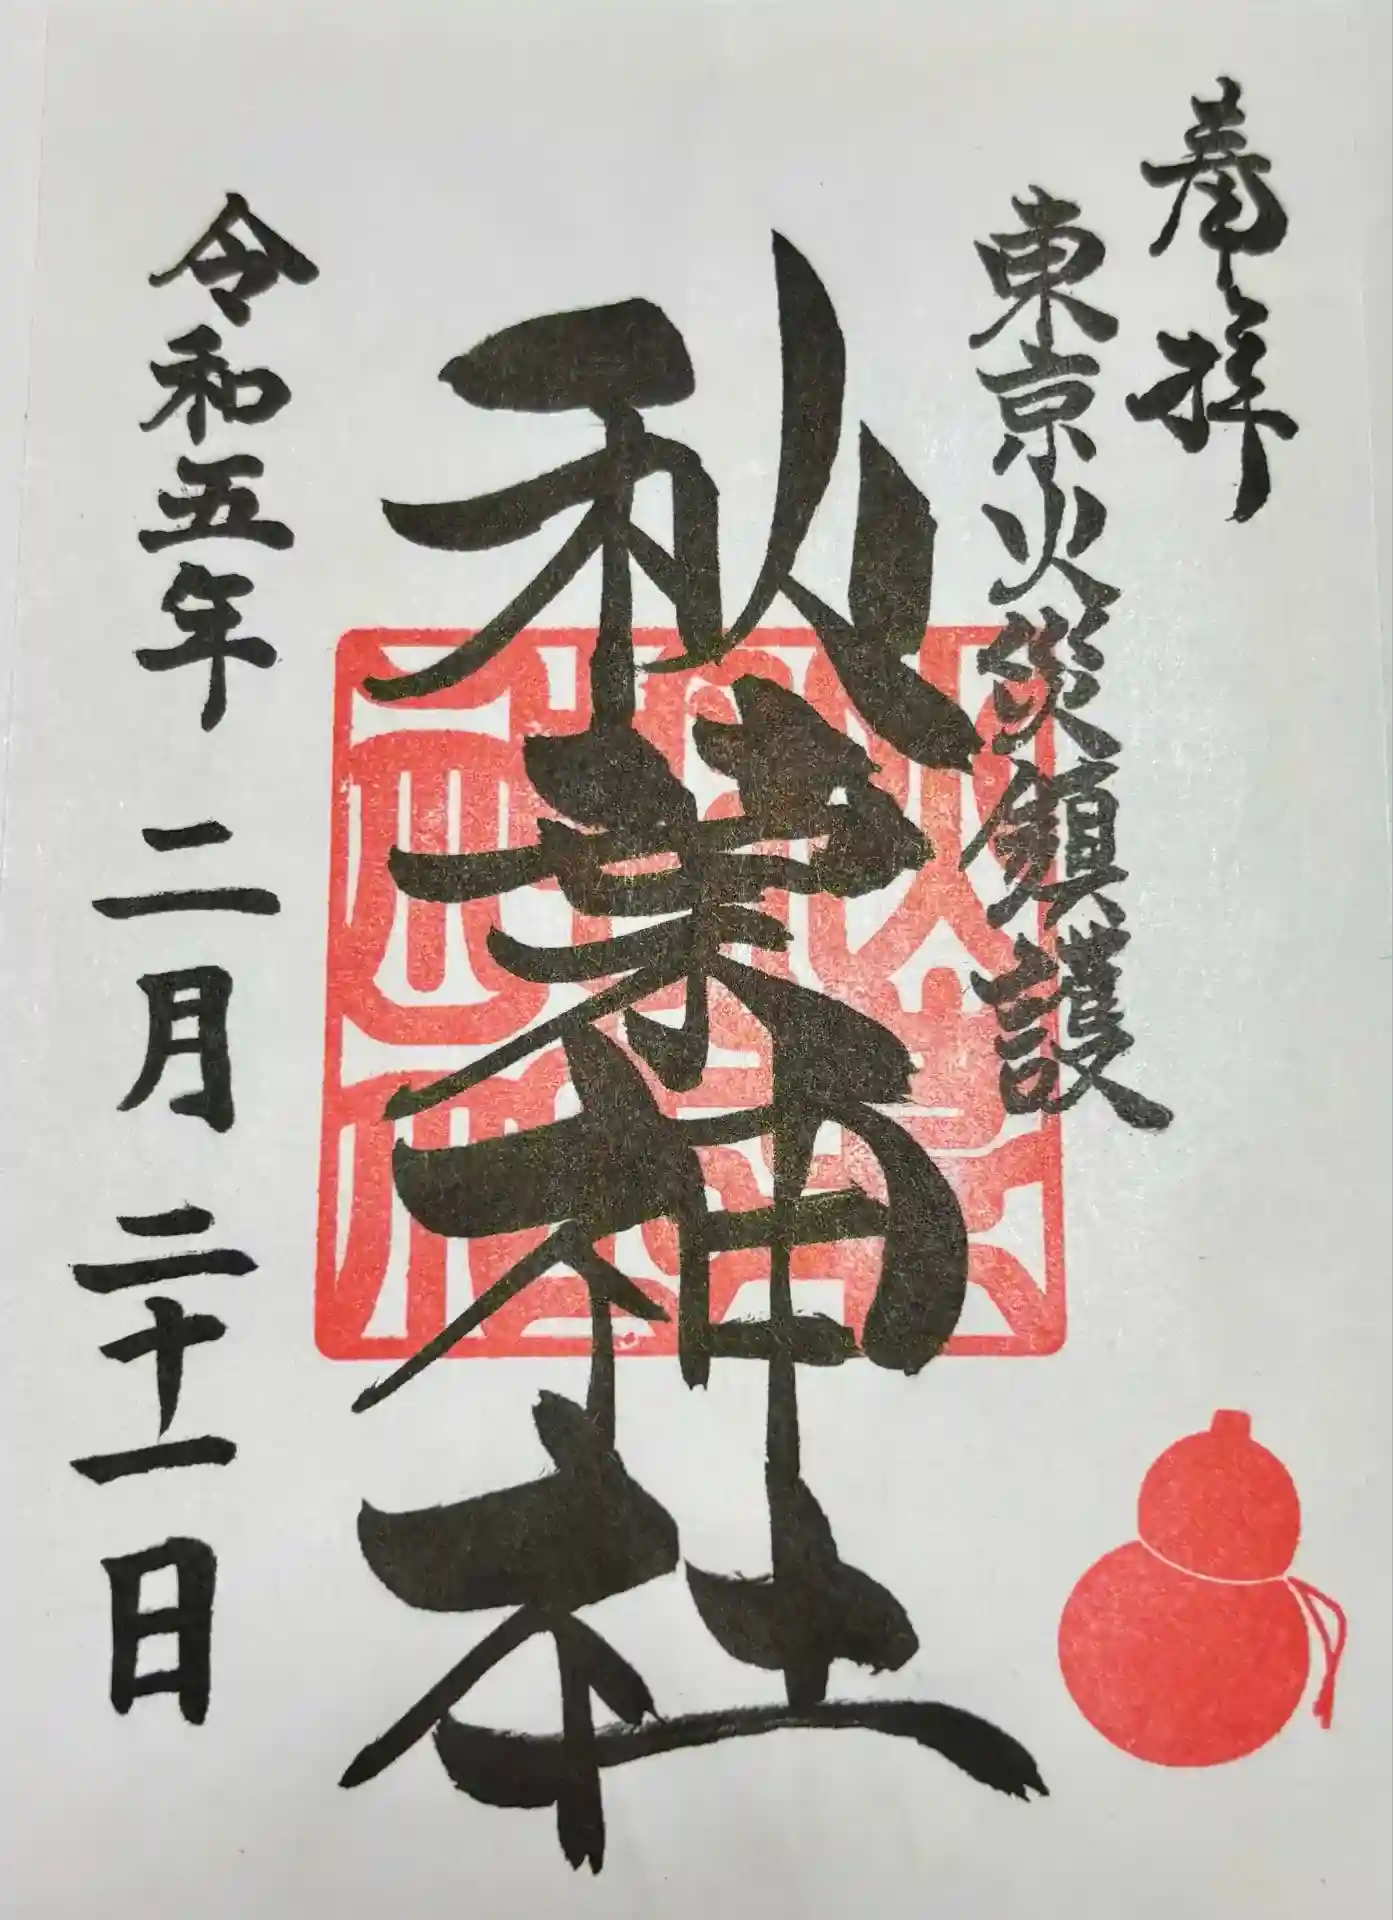 奉拝
東京火災鎮護
秋葉神社
令和五年二月二十一日